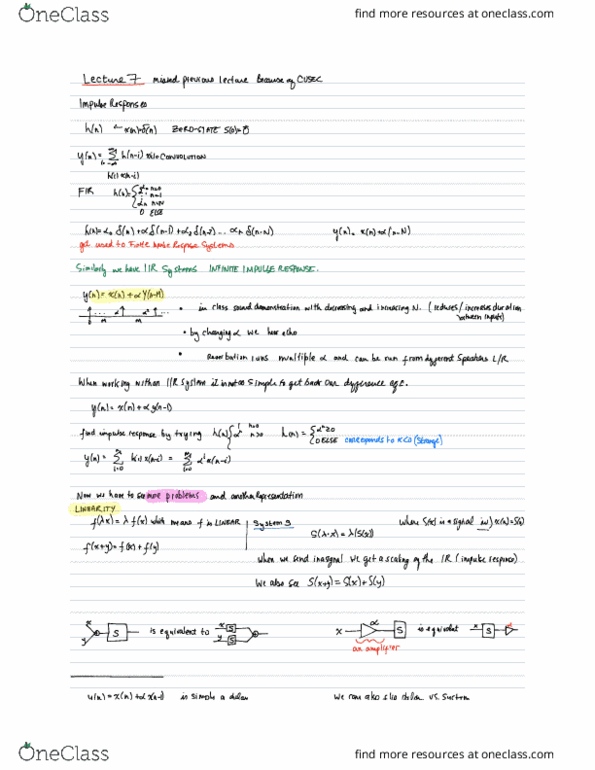 OneClass
find more resources at oneclass.com
Lecture 7 missed previous lecture because of CUSEC
Impulse Responses
h(n) ← x(n)=δ(n) ZERO-STATE S(0)=0
y(n)= Σ h(n-i) x(i) CONVOLUTION
h(i) x(n-i)
FIR h(n)= { n=0
n=1
n=N
0 ELSE
h(n)=α₀ δ(n)+αδ(n-1)+α₂δ(n-2)... αₙ δ(n-N) y(n)= x(n)+α(n-N)
get used to Finite Impulse Response Systems
Similarly we have IIR Systems INFINITE IMPULSE RESPONSE.
y(n)=x(n)+αY(n-M)
α α² ...
0 M M
• in class sound demonstration with decreasing and increasing N. (reduces/increases duration between inputs)
• by changing α we hear echo
• runs multiple α and can be run from different speakers L/R
When working with an IIR System it is not as simple to get back our difference eqt.
y(n)=x(n)+αy(n-1)
find impulse response by trying h(n){ 1 n=0 αⁿ n>0 h(n)= { αⁿ≥0 0 ELSE corresponds to (Strange)
y(n)= Σ h(i)x(n-i) = Σ αⁱx(n-i)
i=0 i=0
Now we have to see more problems and another representation
LINEARITY
f(λx)=λf(x) which means f is LINEAR System S where S(x) is a signal
S(λ·x)=λ(S(y))
f(x+y)=f(x)+f(y)
When we send in a signal we get a scaling of the IR (impulse response)
We also see S(x+y)=S(x)+S(y)
x y S is equivalent to x S y S x α S is equivalent x S
an amplifier
y(n)=x(n)+αx(n-1) is simple a delay We can also
OneClass
find more resources at oneclass.com